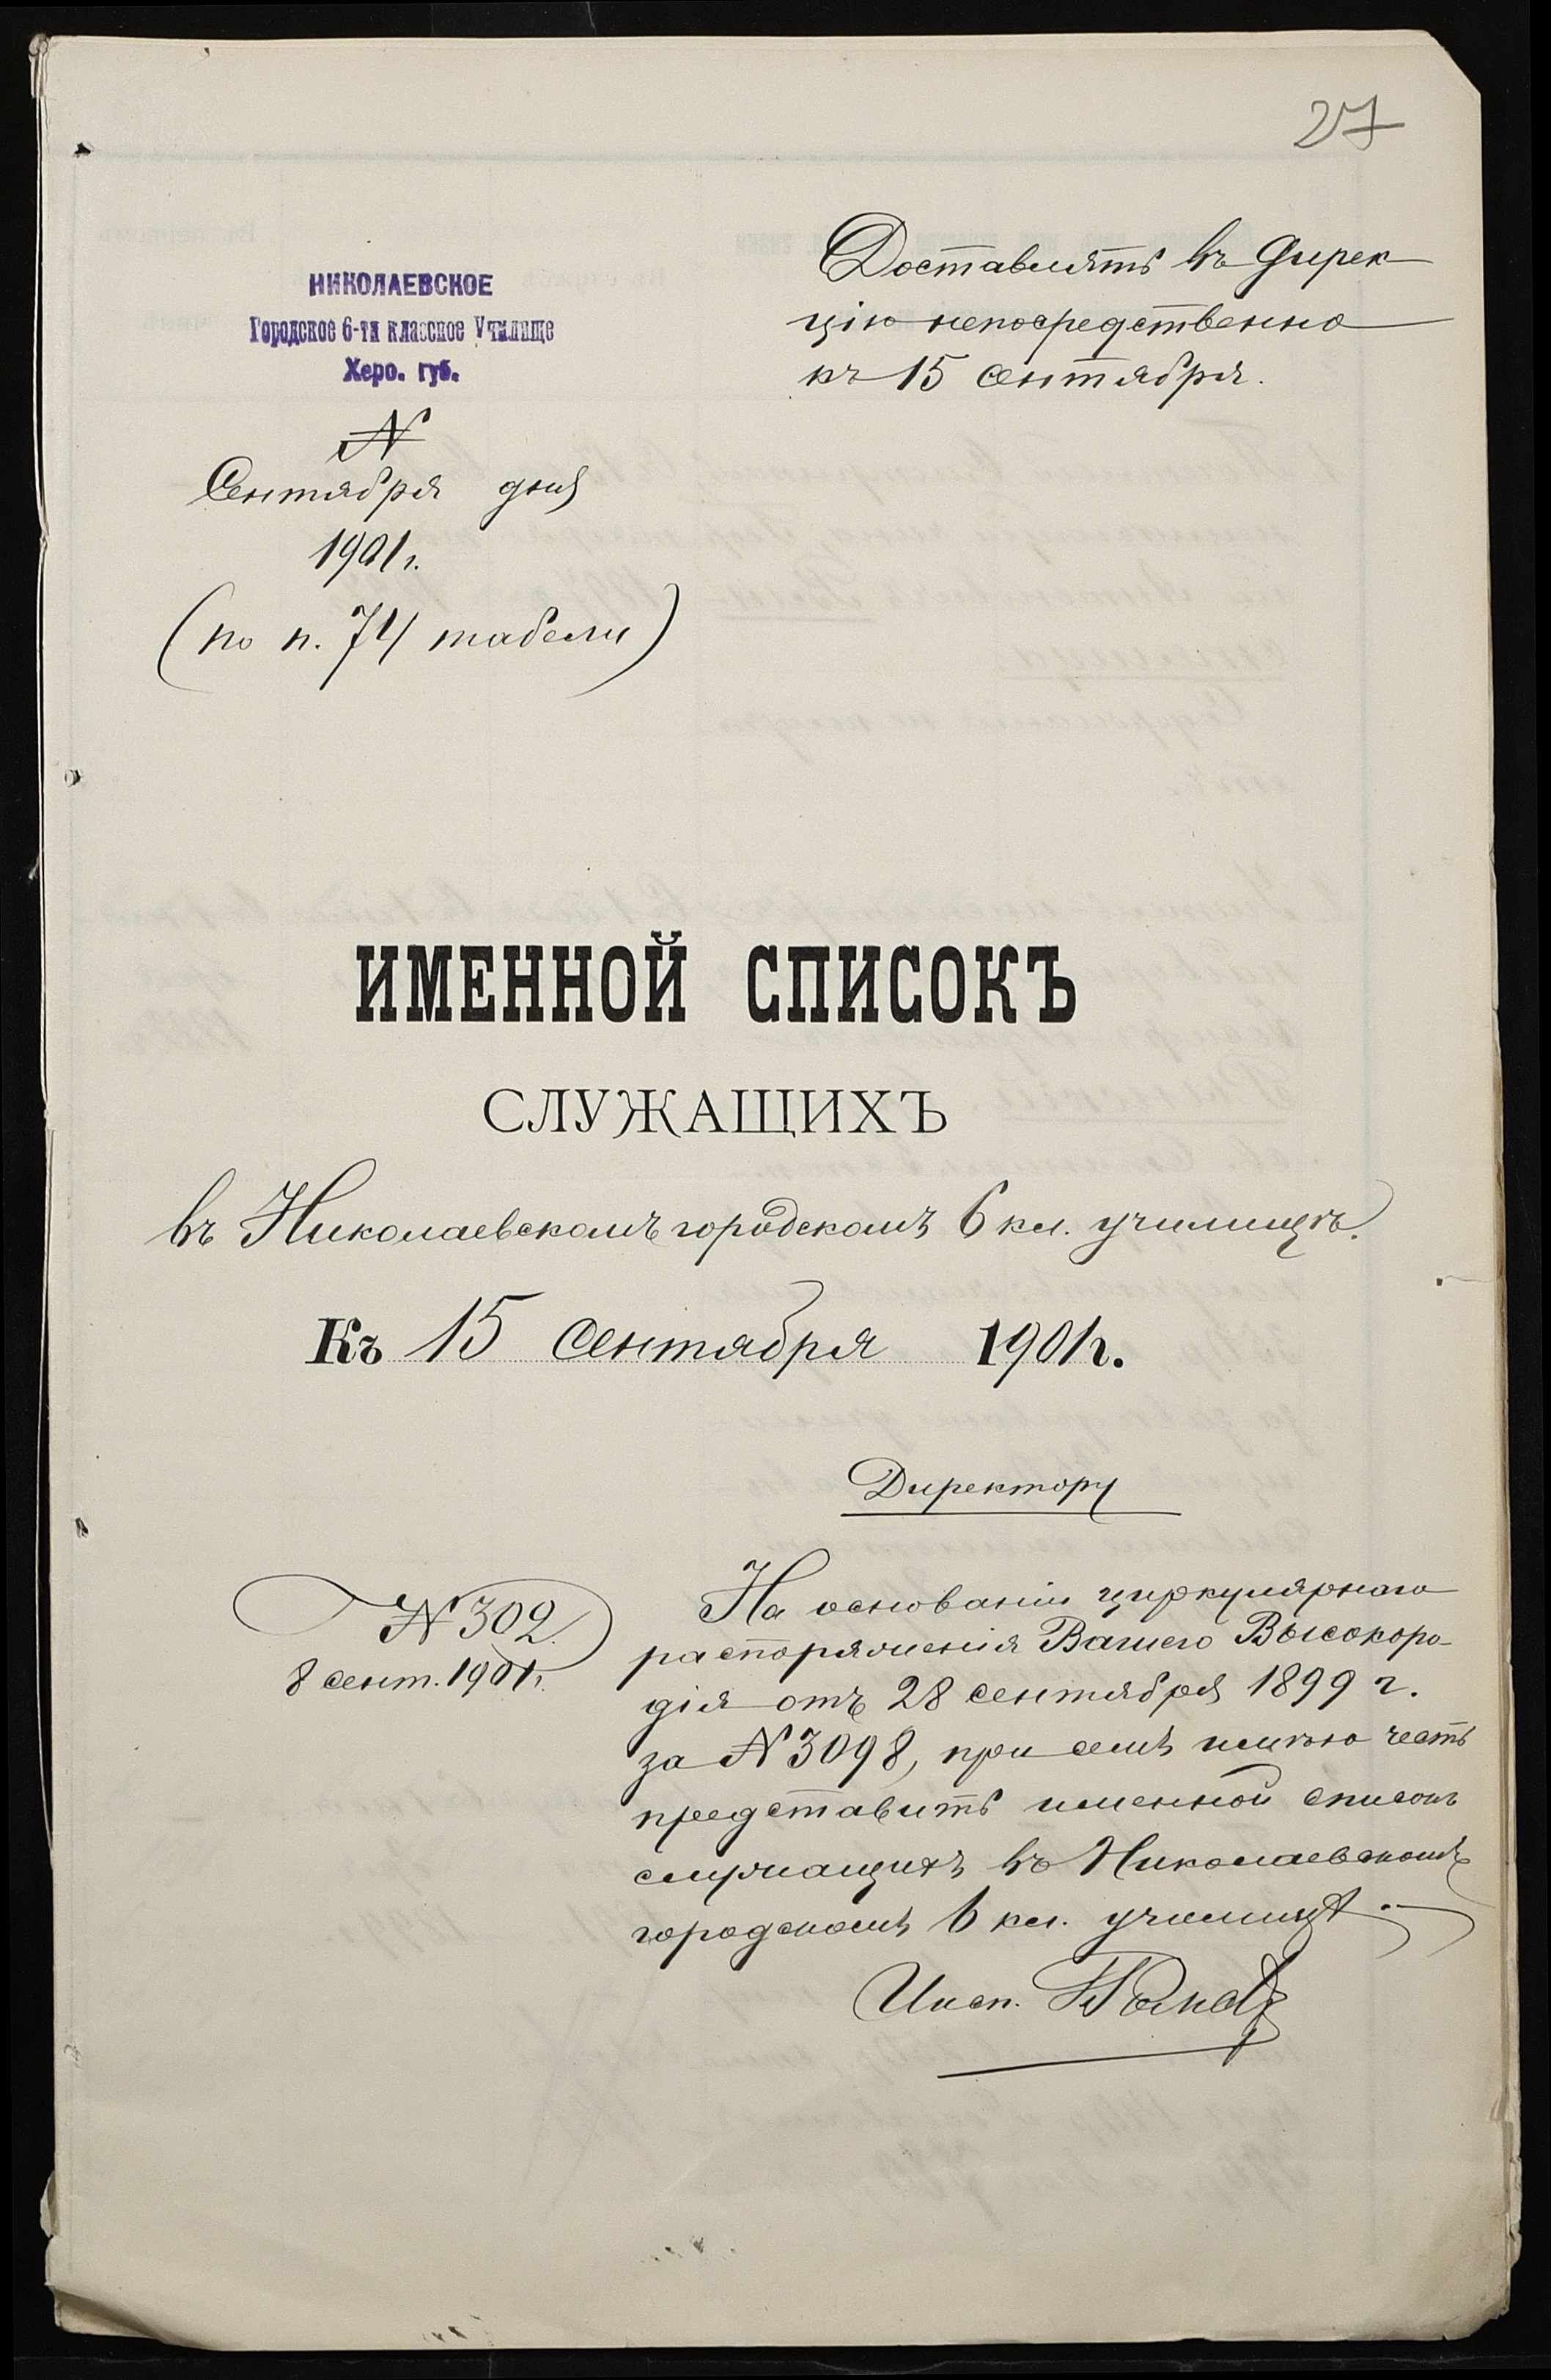 27
НИКОЛАЕВСКОЕ
Городское 6-ти классное Училище
Херс. губ.
№
Сентября дня
1901 г.
(по п. 74 табели)
Доставлять въ Дирек
цію непосредственно
къ 15 сентября.
ИМЕННОЙ СПИСОКЪ
СЛУЖАЩИХЪ
въ Николаевскомъ городскомъ 6 кл. училищѣ.
Къ 15 сентября 1901 г.
Директору
№ 302.
8 сент. 1901 г.
На основаніи циркулярнаго
распоряженія Вашего Высокоро-
дія отъ 28 сентября 1899 г.
за № 3098, при семъ имѣю честь
представить именной списокъ
служащихъ въ Николаевскомъ
городскомъ 6 кл. училищѣ.
Инсп.